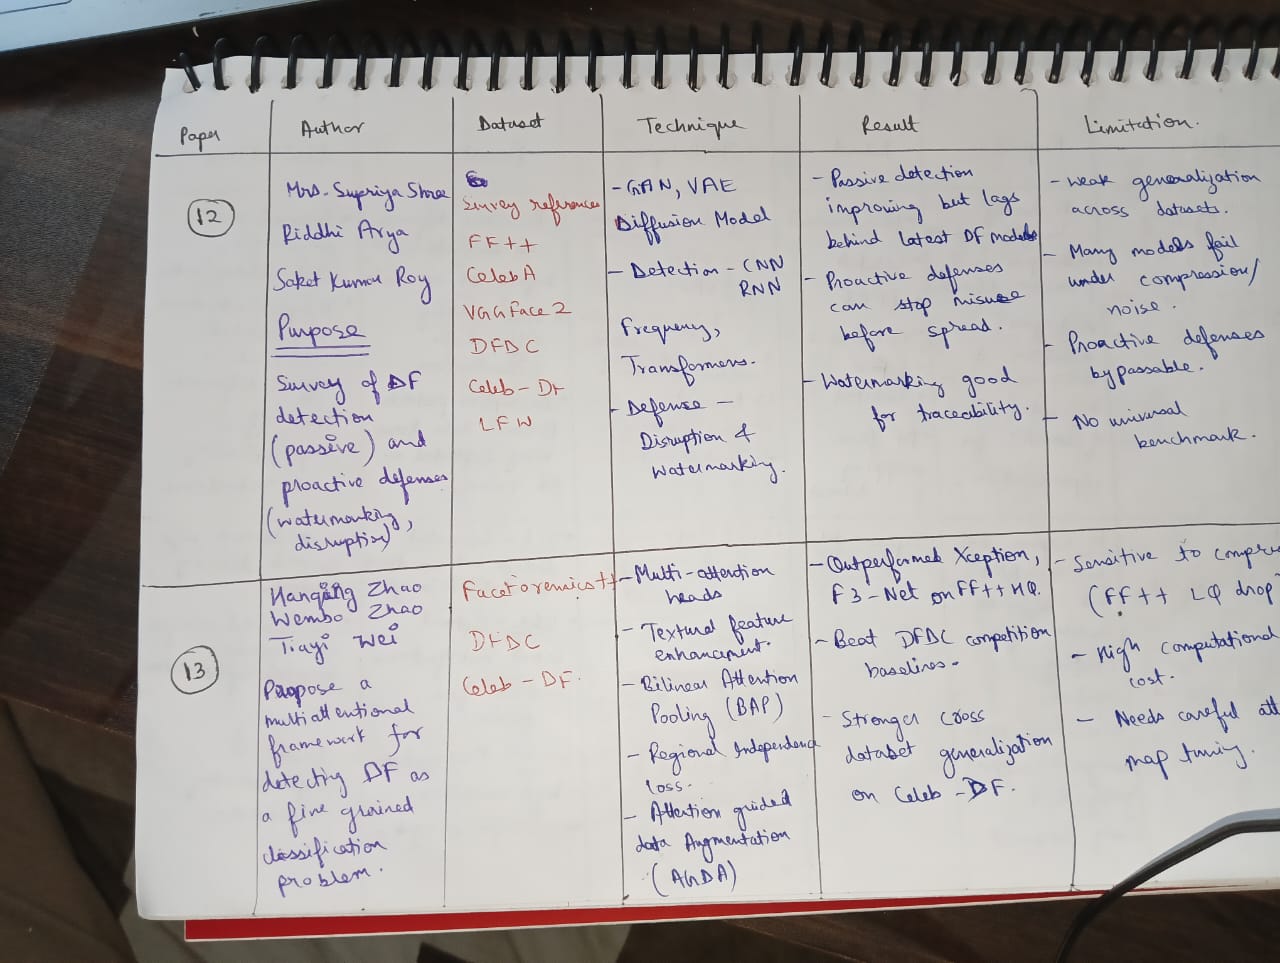 Paper
Author
Dataset
Technique
Result
Limitation.
12
Mrs. Supriya Shree
Riddhi Arya
Saket Kumar Roy
Purpose
Survey of DF
detection
(passive) and
proactive defenses
(watermarking,
disruption)
Survey references
FF++
CelebA
VGGFace2
DFDC
Celeb-DF
LFW
- GAN, VAE
Diffusion Model
- Detection - CNN
RNN
Frequency,
Transformers.
- Defense -
Disruption &
watermarking.
- Passive detection
improving but lags
behind latest DF models
- Proactive defenses
can stop misuse
before spread.
- Watermarking good
for traceability.
- weak generalization
across datasets.
- Many models fail
under compression/
noise.
- Proactive defenses
bypassable.
- No universal
benchmark.
13
Hanqing Zhao
Wenbo Zhao
Tiayi Wei
Propose a
multiattentional
framework for
detecting DF as
a fine grained
classification
problem.
FaceForensics++
DFDC
Celeb-DF.
- Multi-attention
heads
- Textural feature
enhancement.
- Bilinear Attention
Pooling (BAP)
- Regional Independence
loss.
- Attention guided
data Augmentation
(AGDA)
- Outperformed Xception,
F3-Net on FF++ HQ.
- Beat DFDC competition
baselines.
- Stronger cross
dataset generalization
on Celeb-DF.
- Sensitive to compre
(FF++ LQ drop
- High computational
cost.
- Needs careful att
map tuning.